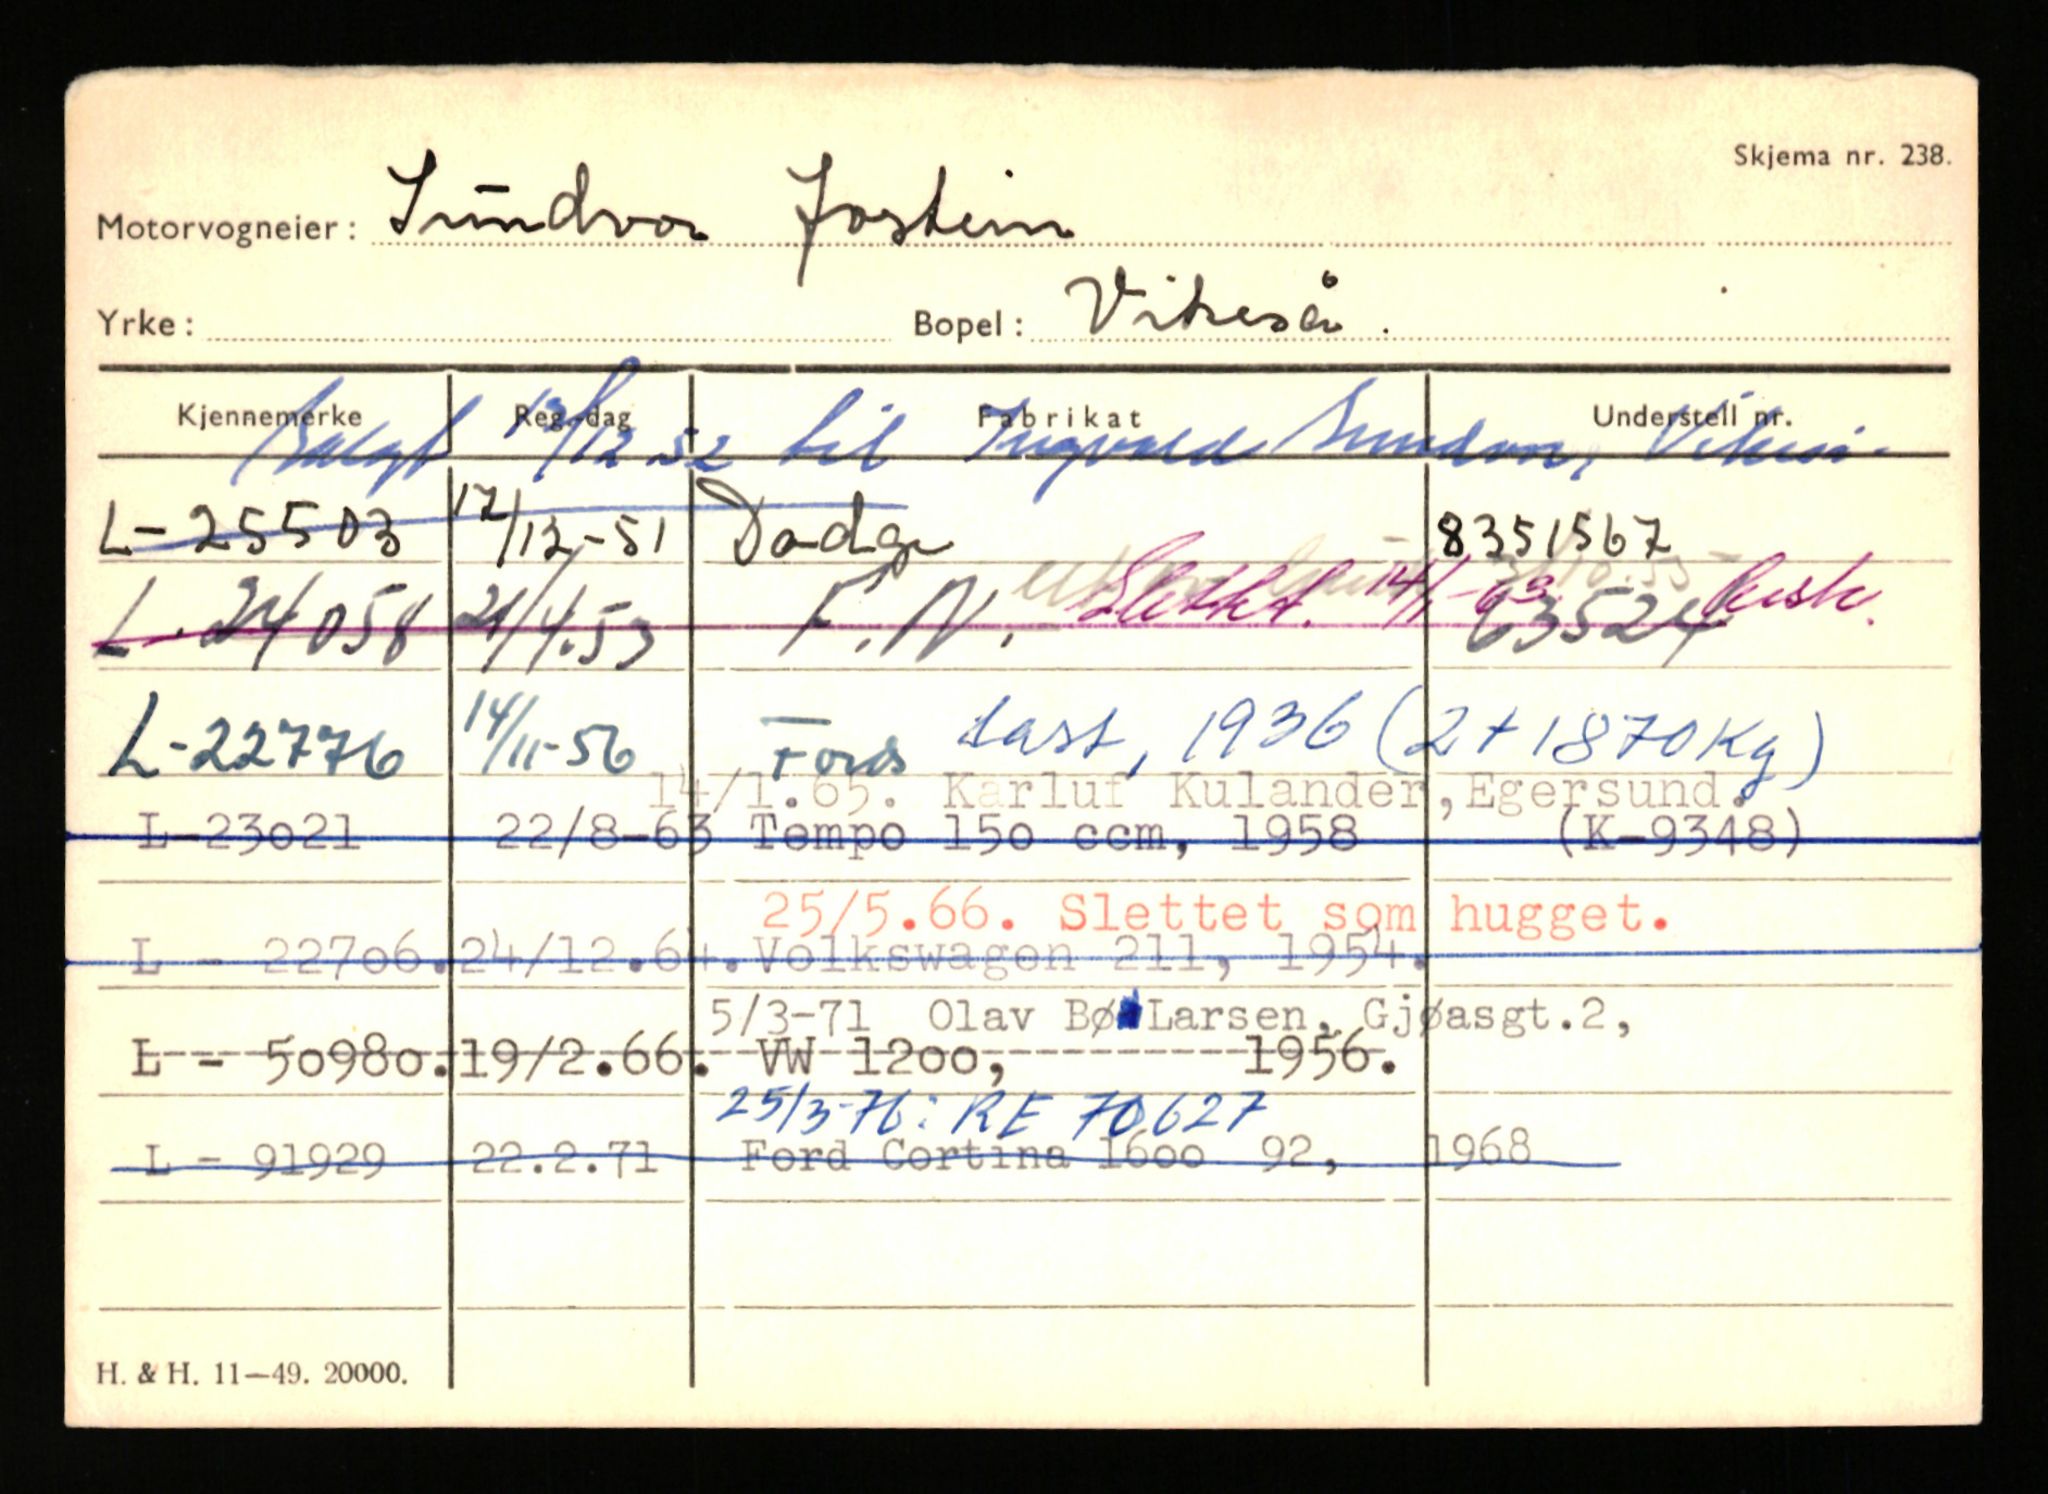 Skjema nr. 238.
Motorvogneier: Sundvor Jostein
Yrke: Bopel: Vikeså.
Kjennemerke Reg.-dag Fabrikat Understell nr.
Solgt 12/12 52 til Ingvald Sundvor, Vikeså.
L-25503 17/12-51 Dodge 8351567
Slettet. 14/1-63
L. 24058 21/4.53 F.N. 63524
L-22776 14/11-56 Ford Last, 1936 (2+1870Kg)
14/1.65. Karluf Kulander, Egersund.
L-23021 22/8-63 Tempo 150 ccm, 1958 (K-9348)
25/5.66. Slettet som hugget.
L - 22706. 24/12.64. Volkswagen 211, 1954.
5/3-71 Olav Bø Larsen, Gjøasgt.2,
L - 50980. 19/2.66. VW 1200, 1956.
25/3-76: RE 70627
L - 91929 22.2.71 Ford Cortina 1600 92, 1968
H. & H. 11—49. 20000.